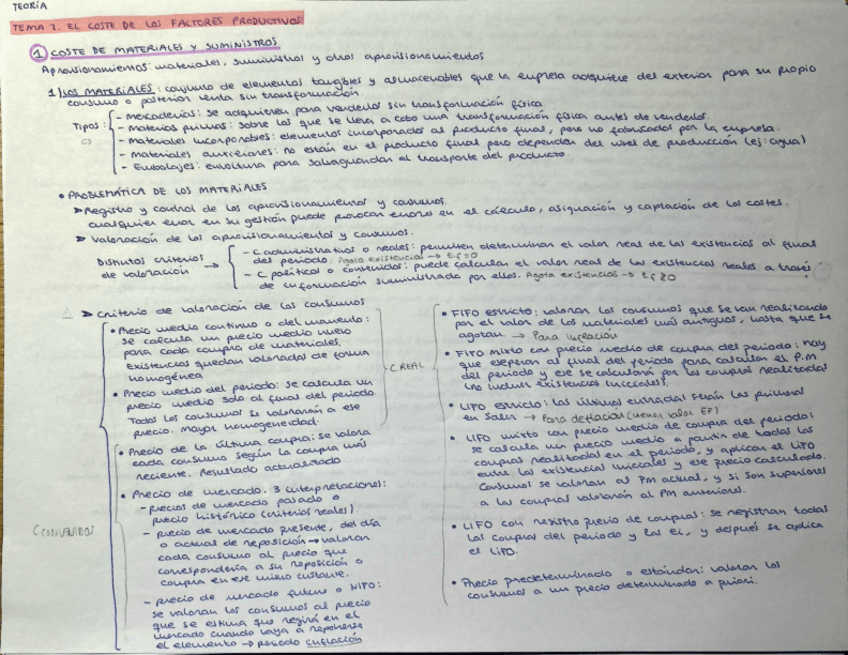 TEORÍA
TEMA 2. EL COSTE DE LOS FACTORES PRODUCTIVOS
1 COSTE DE MATERIALES Y SUMINISTROS
Aprovisionamientos: materiales, suministros y otros aprovisionamientos
1) LOS MATERIALES: conjunto de elementos tangibles y almacenables que la empresa adquiere del exterior para su propio
consumo o posterior venta sin transformación
Tipos:
- Mercaderías: se adquieren para venderlos sin transformación física
- Materias primas: sobre los que se lleva a cabo una transformación física antes de venderlos.
- Materiales incorporables: elementos incorporados al producto final, pero no fabricados por la empresa.
- Materiales auxiliares: no están en el producto final pero dependen del nivel de producción (ej: agua)
- Embalajes: envoltura para salvaguardar el transporte del producto.
• PROBLEMÁTICA DE LOS MATERIALES
➤ Registro y control de los aprovisionamientos y consumos.
cualquier error en su gestión puede provocar errores en el cálculo, asignación y captación de los costes.
➤ Valoración de los aprovisionamientos y consumos.
Distintos criterios
de valoración →
- C administrativos o reales: permiten determinar el valor real de las existencias al final
del periodo. Agota existencias → Ef=0
- C políticos o convenidos: puede calcular el valor real de las existencias reales a través
de información suministrada por ellos. Agota existencias → Ef≠0
➤ Criterio de valoración de los consumos
• Precio medio continuo o del momento:
se calcula un precio medio nuevo
para cada compra de materiales.
Existencias quedan valoradas de forma
homogénea
• Precio medio del periodo: se calcula un
precio medio solo al final del periodo
Todos los consumos se valorarán a ese
precio. Mayor homogeneidad.
C REAL
• Precio de la última compra: se valora
cada consumo según la compra más
reciente. Resultado actualizado
• Precio de mercado. 3 interpretaciones:
- precios de mercado pasado o
precio histórico (criterios reales)
- precio de mercado presente, del día
o actual de reposición → valoran
cada consumo al precio que
correspondería a su reposición o
compra en ese mismo instante.
- precio de mercado futuro o NIFO:
se valoran los consumos al precio
que se estima que regirá en el
mercado cuando vaya a reponerse
el elemento → periodo inflación
C CONVENIDOS
• FIFO estricto: valoran los consumos que se van realizando
por el valor de los materiales más antiguos, hasta que se
agotan. → Para inflación
• FIFO mixto con precio medio de compra del periodo: hay
que esperar al final del periodo para calcular el P.M
del periodo y ese se calculará por las compras realizadas
(no incluir existencias iniciales).
• LIFO estricto: las últimas entradas serán las primeras
en salir → Para deflación (menor valor EF)
• LIFO mixto con precio medio de compra del periodo:
se calcula un precio medio a partir de todas las
compras realizadas en el periodo, y aplican el LIFO
entre las existencias iniciales y ese precio calculado.
Consumos se valoran al PM actual, y si son superiores
a las compras valorarán al PM anteriores.
• LIFO con registro previo de compras: se registran todas
las compras del periodo y las Ei, y después se aplica
el LIFO.
• Precio predeterminado o estándar: valoran los
consumos a un precio determinado a priori.